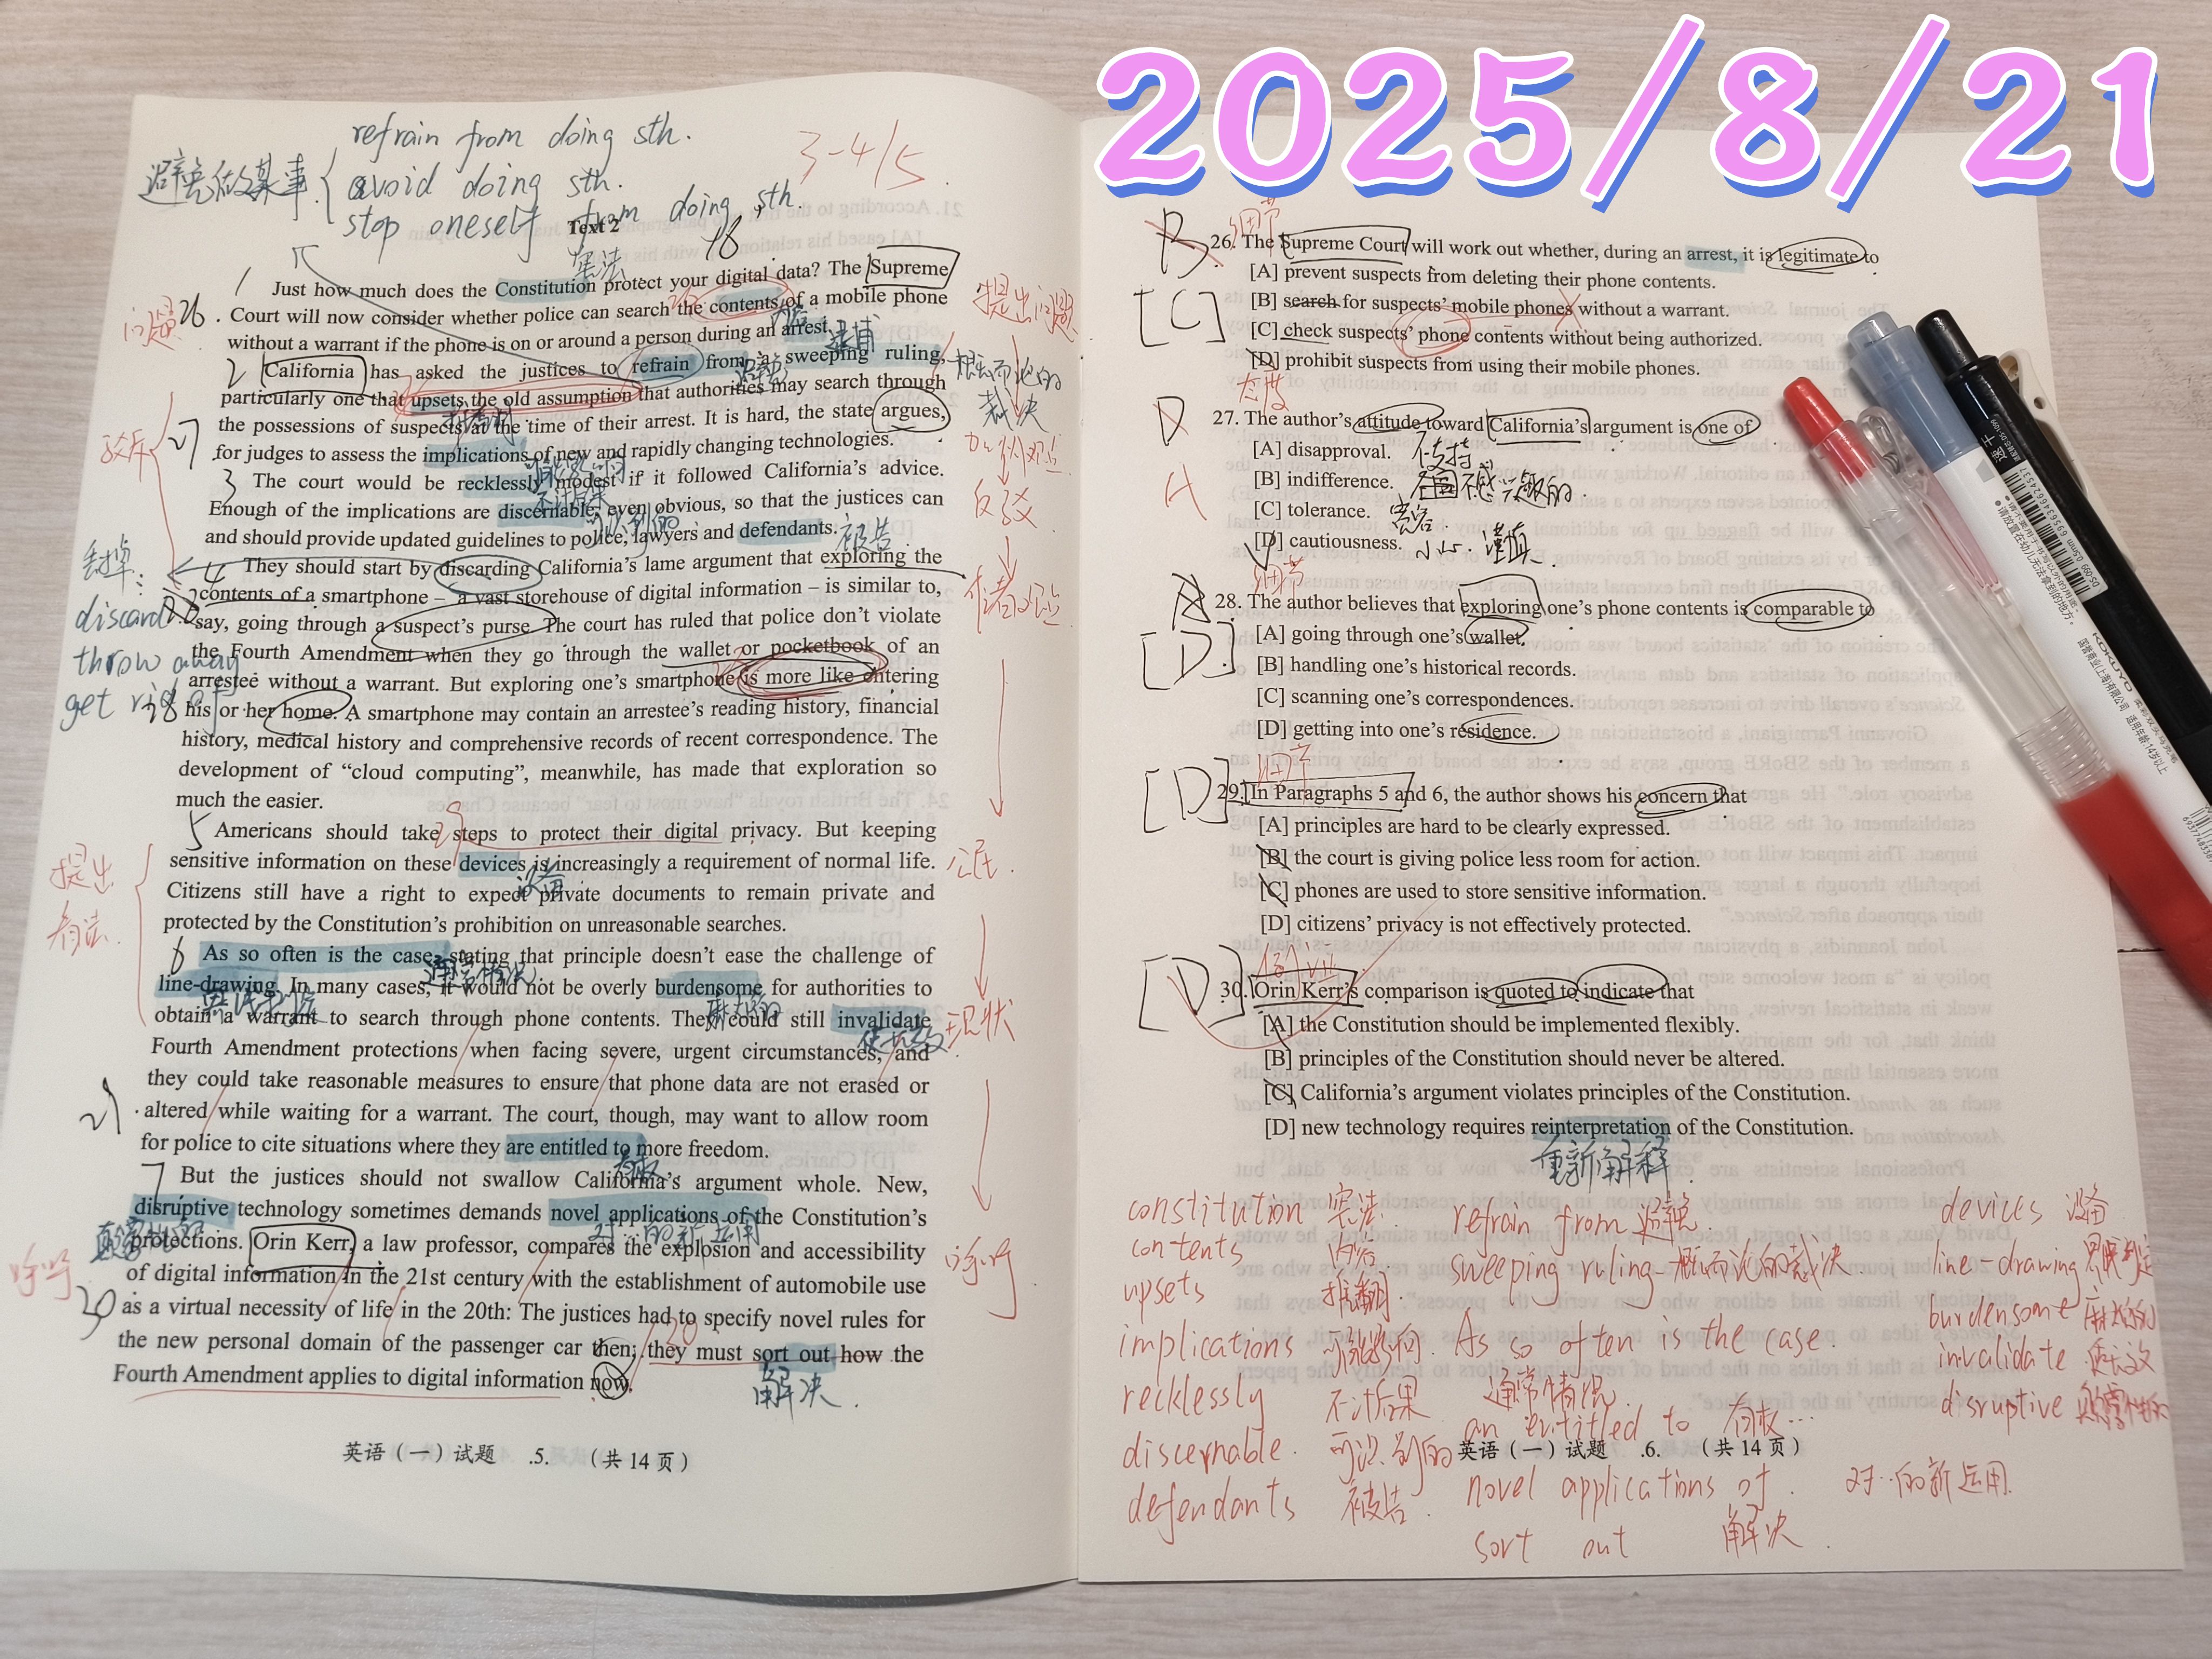 2025/8/21
refrain from doing sth.
避免做某事.
avoid doing sth.
stop oneself from doing sth.
3-4/5
Text 2
宪法
1 Just how much does the Constitution protect your digital data? The Supreme
Court will now consider whether police can search the contents of a mobile phone
without a warrant if the phone is on or around a person during an arrest.
2 California has asked the justices to refrain from a sweeping ruling,
particularly one that upsets the old assumption that authorities may search through
the possessions of suspects at the time of their arrest. It is hard, the state argues,
for judges to assess the implications of new and rapidly changing technologies.
3 The court would be recklessly modest if it followed California's advice.
Enough of the implications are discernable, even obvious, so that the justices can
and should provide updated guidelines to police, lawyers and defendants.
4 They should start by discarding California's lame argument that exploring the
contents of a smartphone – a vast storehouse of digital information – is similar to,
say, going through a suspect's purse. The court has ruled that police don't violate
the Fourth Amendment when they go through the wallet or pocketbook of an
arrestee without a warrant. But exploring one's smartphone is more like entering
his or her home. A smartphone may contain an arrestee's reading history, financial
history, medical history and comprehensive records of recent correspondence. The
development of “cloud computing”, meanwhile, has made that exploration so
much the easier.
5 Americans should take steps to protect their digital privacy. But keeping
sensitive information on these devices is increasingly a requirement of normal life.
Citizens still have a right to expect private documents to remain private and
protected by the Constitution's prohibition on unreasonable searches.
6 As so often is the case, stating that principle doesn't ease the challenge of
line-drawing. In many cases, it would not be overly burdensome for authorities to
obtain a warrant to search through phone contents. They could still invalidate
Fourth Amendment protections when facing severe, urgent circumstances, and
they could take reasonable measures to ensure that phone data are not erased or
altered while waiting for a warrant. The court, though, may want to allow room
for police to cite situations where they are entitled to more freedom.
7 But the justices should not swallow California's argument whole. New,
disruptive technology sometimes demands novel applications of the Constitution's
protections. Orin Kerr, a law professor, compares the explosion and accessibility
of digital information in the 21st century with the establishment of automobile use
as a virtual necessity of life in the 20th: The justices had to specify novel rules for
the new personal domain of the passenger car then; they must sort out how the
Fourth Amendment applies to digital information now.
问题
26
27
28
29
30
内容
逮捕
避免
推翻
可能影响
不计后果
可识别的
被告
设备
通常情况
麻烦的
使无效
有权
对…的新运用
解决.
丢掉:
discard
throw away
get rid of
提出
看法
呼吁
提出问题
概括而论的
裁决
加州观点
反驳
作者观点
公民.
现状
呼吁
英语（一）试题 .5. （共14页）
B 细节
26. The Supreme Court will work out whether, during an arrest, it is legitimate to
[A] prevent suspects from deleting their phone contents.
[B] search for suspects' mobile phones without a warrant.
[C] check suspects' phone contents without being authorized.
[D] prohibit suspects from using their mobile phones.
[C]
态度
27. The author's attitude toward California's argument is one of
[A] disapproval. 不支持
[B] indifference. 不感兴趣的.
[C] tolerance. 宽容.
[D] cautiousness. 小心. 谨慎.
D
A
细节
28. The author believes that exploring one's phone contents is comparable to
[A] going through one's wallet.
[B] handling one's historical records.
[C] scanning one's correspondences.
[D] getting into one's residence.
[D]
细节
29. In Paragraphs 5 and 6, the author shows his concern that
[A] principles are hard to be clearly expressed.
[B] the court is giving police less room for action.
[C] phones are used to store sensitive information.
[D] citizens' privacy is not effectively protected.
[D]
例证
30. Orin Kerr's comparison is quoted to indicate that
[A] the Constitution should be implemented flexibly.
[B] principles of the Constitution should never be altered.
[C] California's argument violates principles of the Constitution.
[D] new technology requires reinterpretation of the Constitution.
[D]
重新解释
constitution 宪法.
contents 内容
upsets 推翻.
implications 可能影响.
recklessly 不计后果
discernable. 可识别的
defendants 被告.
refrain from 避免.
sweeping ruling 概括而论的裁决.
As so often is the case.
通常情况.
an entitled to 有权…
novel applications of. 对…的新运用.
sort out 解决.
devices 设备
line-drawing 界线划定
burdensome 麻烦的
invalidate 使无效
disruptive 颠覆性的
英语（一）试题 .6. （共14页）
KOKUYO